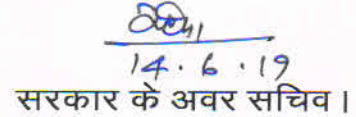 14.6.19
सरकार के अवर सचिव।